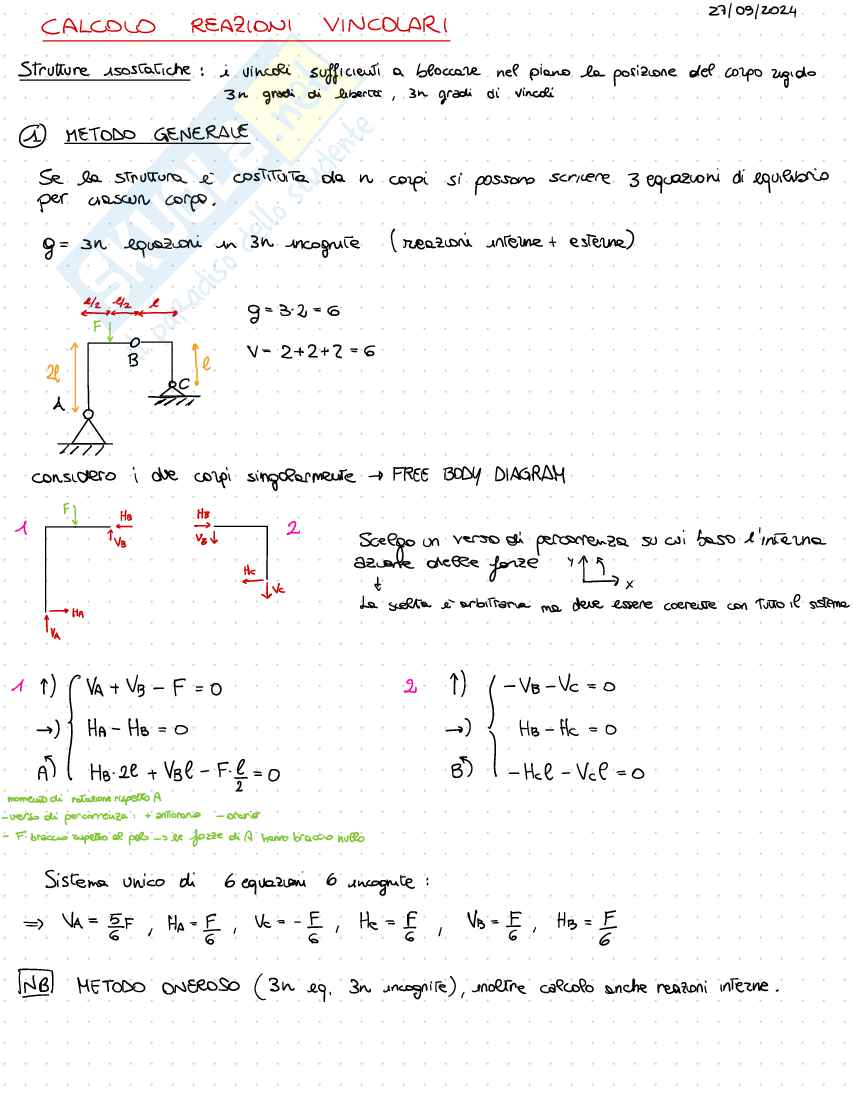 27/09/2024
CALCOLO REAZIONI VINCOLARI
Strutture isostatiche : i vincoli sufficienti a bloccare nel piano la posizione del corpo rigido
3n gradi di libertà, 3n gradi di vincoli
1 METODO GENERALE
Se la struttura è costituita da n corpi si possono scrivere 3 equazioni di equilibrio
per ciascun corpo.
g = 3n equazioni in 3n incognite (reazioni interne + esterne)
SKUOLA.net
il paradiso dello studente
l/2 l/2 l
F
g = 3·2 = 6
B
V = 2+2+2 = 6
2l
l
C
A
considero i due corpi singolarmente → FREE BODY DIAGRAM
1 F HB VB HA VA
HB VB 2 HC VC
Scelgo un verso di percorrenza su cui baso l'interna
azione delle forze y x
La scelta è arbitraria ma deve essere coerente con tutto il sistema
1 ↑) VA + VB − F = 0
→) HA − HB = 0
A) HB·2l + VBl − F·l/2 = 0
2 ↑) −VB − VC = 0
→) HB − HC = 0
B) −HCl − VCl = 0
momento di rotazione rispetto A
- verso di percorrenza: + antiorario - orario
- F·braccio rispetto al polo → le forze di A hanno braccio nullo
Sistema unico di 6 equazioni 6 incognite :
⇒ VA = 5/6 F , HA = F/6 , VC = −F/6 , HC = F/6 , VB = F/6 , HB = F/6
NB METODO ONEROSO (3n eq. 3n incognite), inoltre calcolo anche reazioni interne.